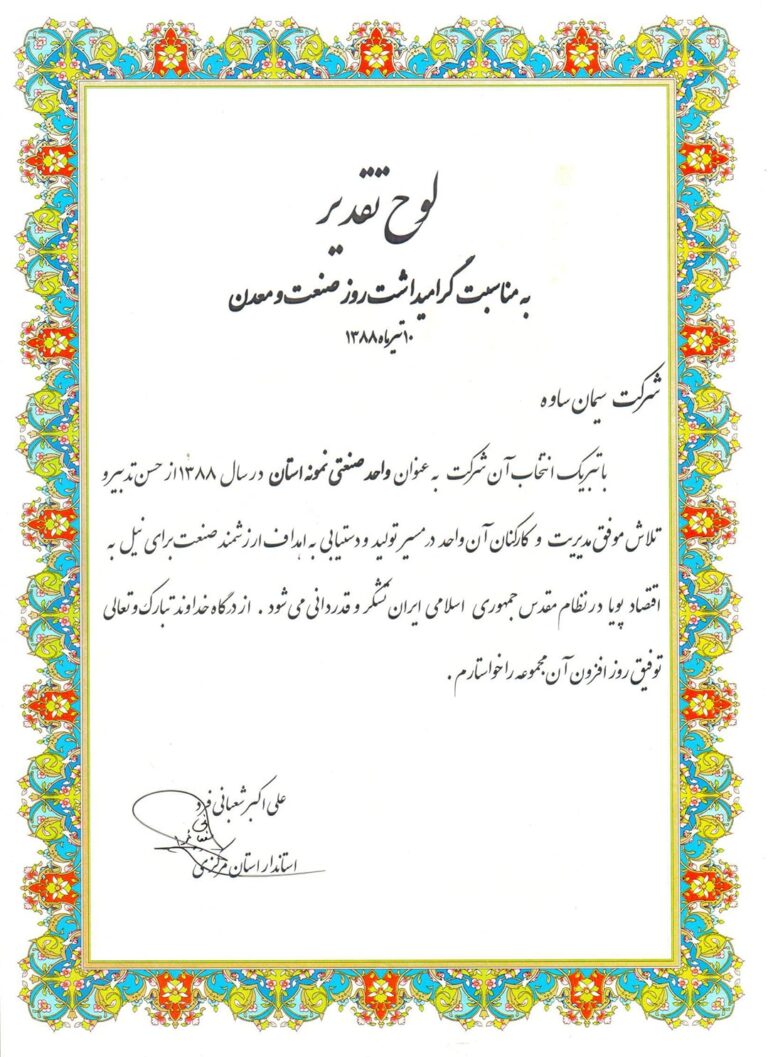 لوح تقدیر
به مناسبت گرامیداشت روز صنعت و معدن
۱۰ تیرماه ۱۳۸۸
شرکت سیمان ساوه
با تبریک انتخاب آن شرکت به عنوان واحد صنعتی نمونه استان در سال ۱۳۸۸ از حسن تدبیر و
تلاش موفق مدیریت و کارکنان آن واحد در مسیر تولید و دستیابی به اهداف ارزشمند صنعت برای نیل به
اقتصاد پویا در نظام مقدس جمهوری اسلامی ایران تشکر و قدردانی می شود . از درگاه خداوند تبارک و تعالی
توفیق روز افزون آن مجموعه را خواستارم .
علی اکبر شعبانی فرد
استاندار استان مرکزی